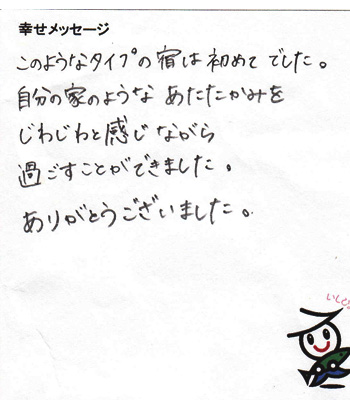 幸せメッセージ
このようなタイプの宿は初めてでした。
自分の家のような あたたかみを
じわじわと感じながら
過ごすことができました。
ありがとうございました。